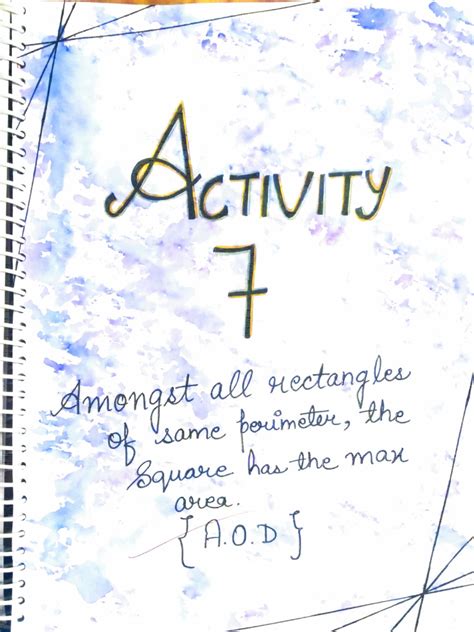 ACTIVITY
7
Amongst all rectangles
of same perimeter, the
Square has the max
area.
{A.O.D}